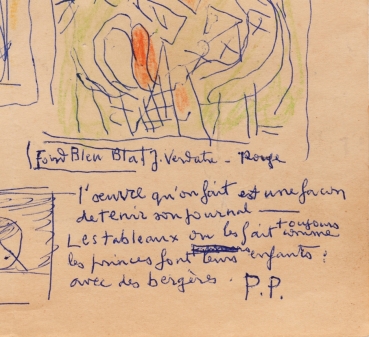 Fond Bleu Blanc J. Verdatre - Rouge
l'œuvre qu'on fait est une façon
de tenir son journal —
Les tableaux on les fait toujours comme
les princes font leurs enfants :
avec des bergères. P.P.